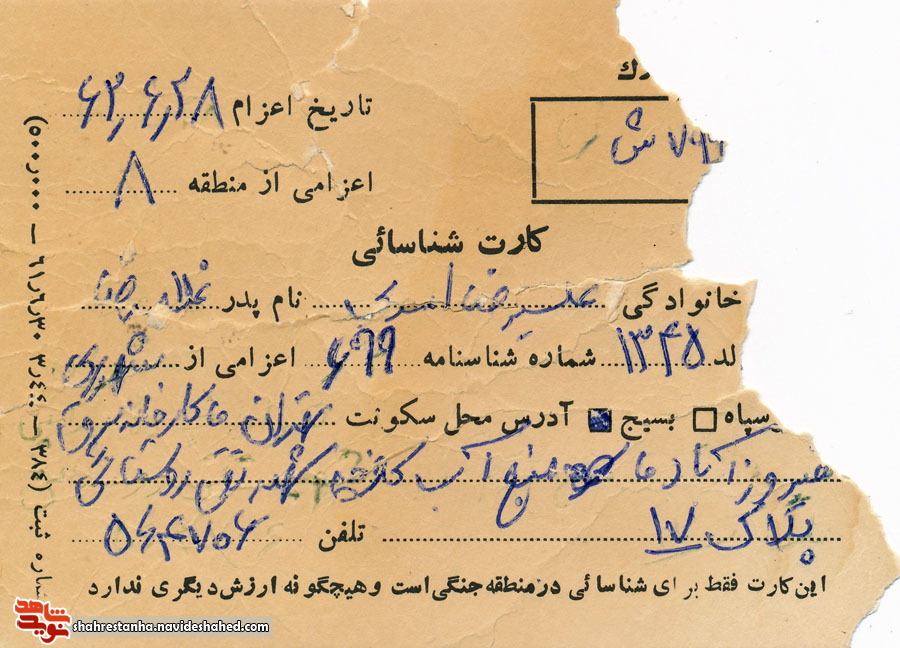 تاریخ اعزام ۶۲٫۶٫۲۸
۷۶۶ ش
اعزامی از منطقه ۸
کارت شناسائی
خانوادگی علیرضا نام پدر غلامرضا
لد ۱۳۴۵ شماره شناسنامه ۶۹۹ اعزامی از شهرری
سپاه بسیج آدرس محل سکونت تهران خ کارخانه
فیروزآباد خ منبع آب
پلاک ۱۷ تلفن ۵۶۴۷۵۶
این کارت فقط برای شناسائی در منطقه جنگی است و هیچگونه ارزش دیگری ندارد
شماره ثبت (۳۸۴ ــ ۳٫۴۴۰ ۶۱٫۶٫۳۰ ــ ۵۰۰٫۰۰۰)
شاهد
نوید
shahrestanha.navideshahed.com